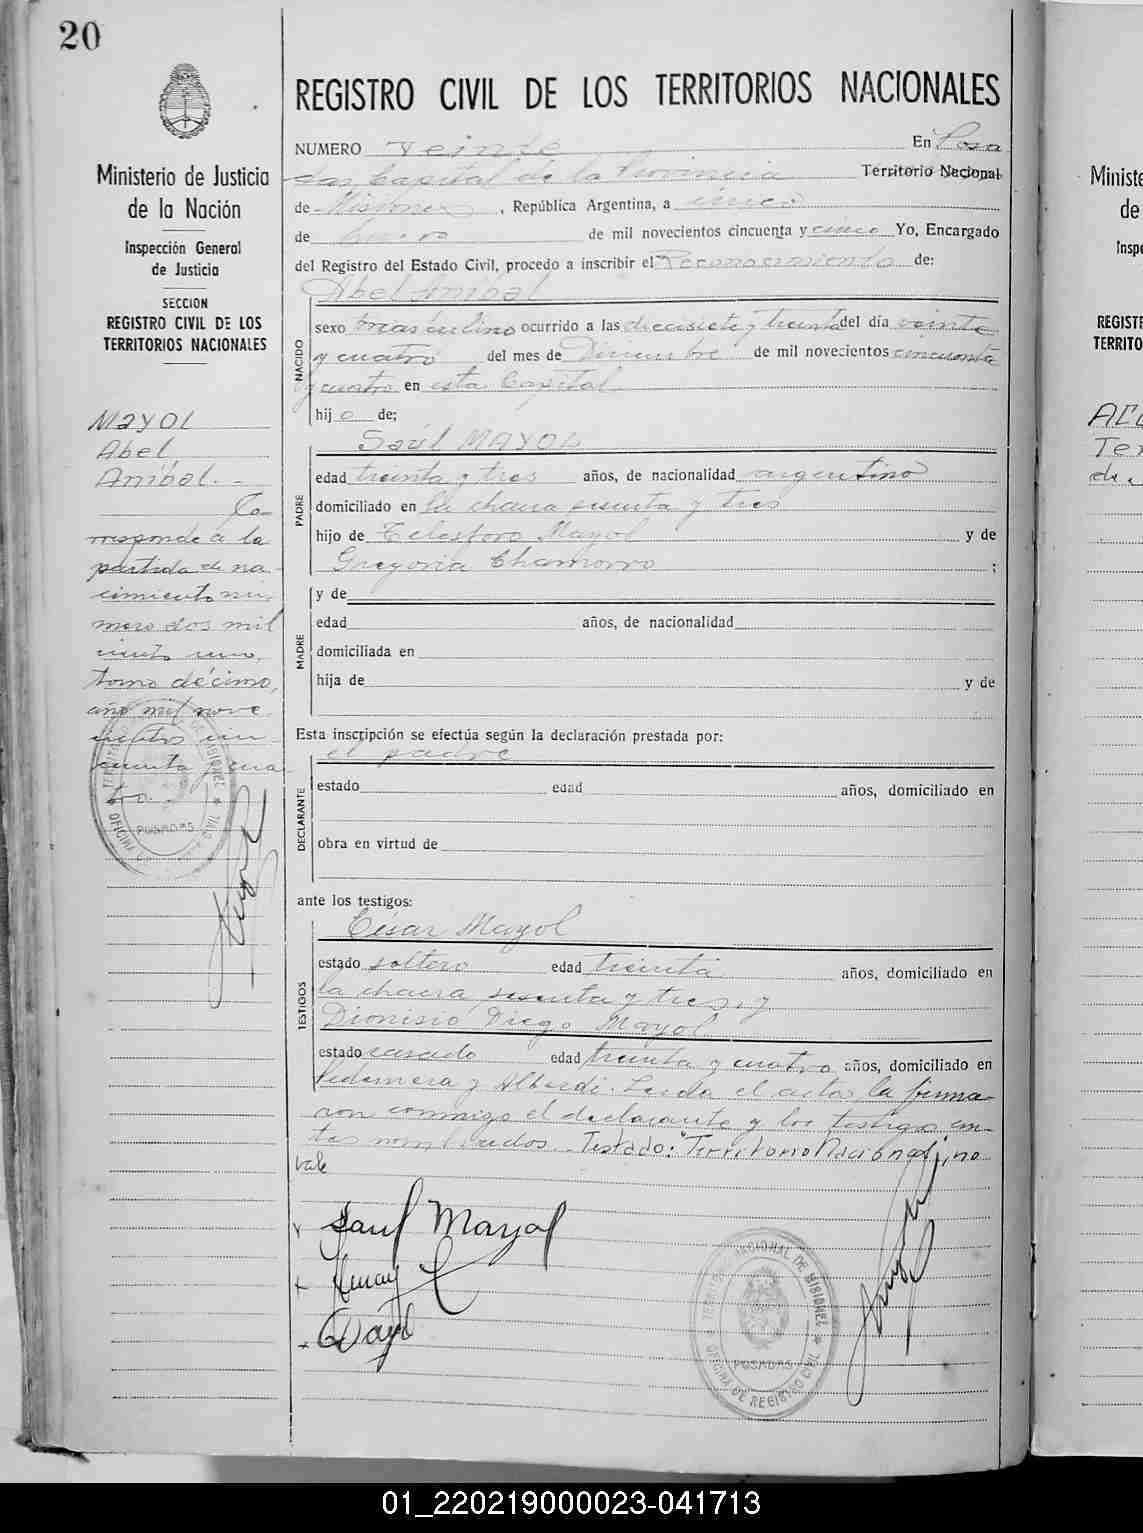 20
Ministerio de Justicia
de la Nación
Inspección General
de Justicia
SECCION
REGISTRO CIVIL DE LOS
TERRITORIOS NACIONALES
MAYOL
Abel
Aníbal. -
Co-
rresponde a la
partida de na-
cimiento nú-
mero dos mil
ciento uno,
tomo décimo,
año mil nove-
cientos cin-
cuenta y cua-
tro.
POSADAS
REGISTRO CIVIL DE LOS TERRITORIOS NACIONALES
NUMERO veinte En Posa
das Capital de la Provincia Territorio Nacional
de Misiones, República Argentina, a cinco
de Enero de mil novecientos cincuenta y cinco Yo, Encargado
del Registro del Estado Civil, procedo a inscribir el Reconocimiento de:
Abel Aníbal
NACIDO
sexo masculino ocurrido a las diecisiete y treinta del día veinte
y cuatro del mes de Diciembre de mil novecientos cincuenta
y cuatro en esta Capital
hijo de;
Saúl MAYOL
PADRE
edad treinta y tres años, de nacionalidad argentino
domiciliado en la chacra sesenta y tres
hijo de Telesforo Mayol y de
Gregoria Chamorro ;
y de
MADRE
edad años, de nacionalidad
domiciliada en
hija de y de
Esta inscripción se efectúa según la declaración prestada por:
el padre
DECLARANTE
estado edad años, domiciliado en
obra en virtud de
ante los testigos:
César Mayol
TESTIGOS
estado soltero edad treinta años, domiciliado en
la chacra sesenta y tres, y
Dionisio Diego Mayol
estado casado edad treinta y cuatro años, domiciliado en
Pedernera y Alberdi. Leída el acta, la firma-
ron conmigo el declarante y los testigos an-
tes nombrados. Testado: "Territorio Nacional", no
vale
Saul Mayol
TERRITORIO NACIONAL DE MISIONES
POSADAS
OFICINA DE REGISTRO CIVIL
Ministe
de
Inspe
REGISTR
TERRITO
01_220219000023-041713